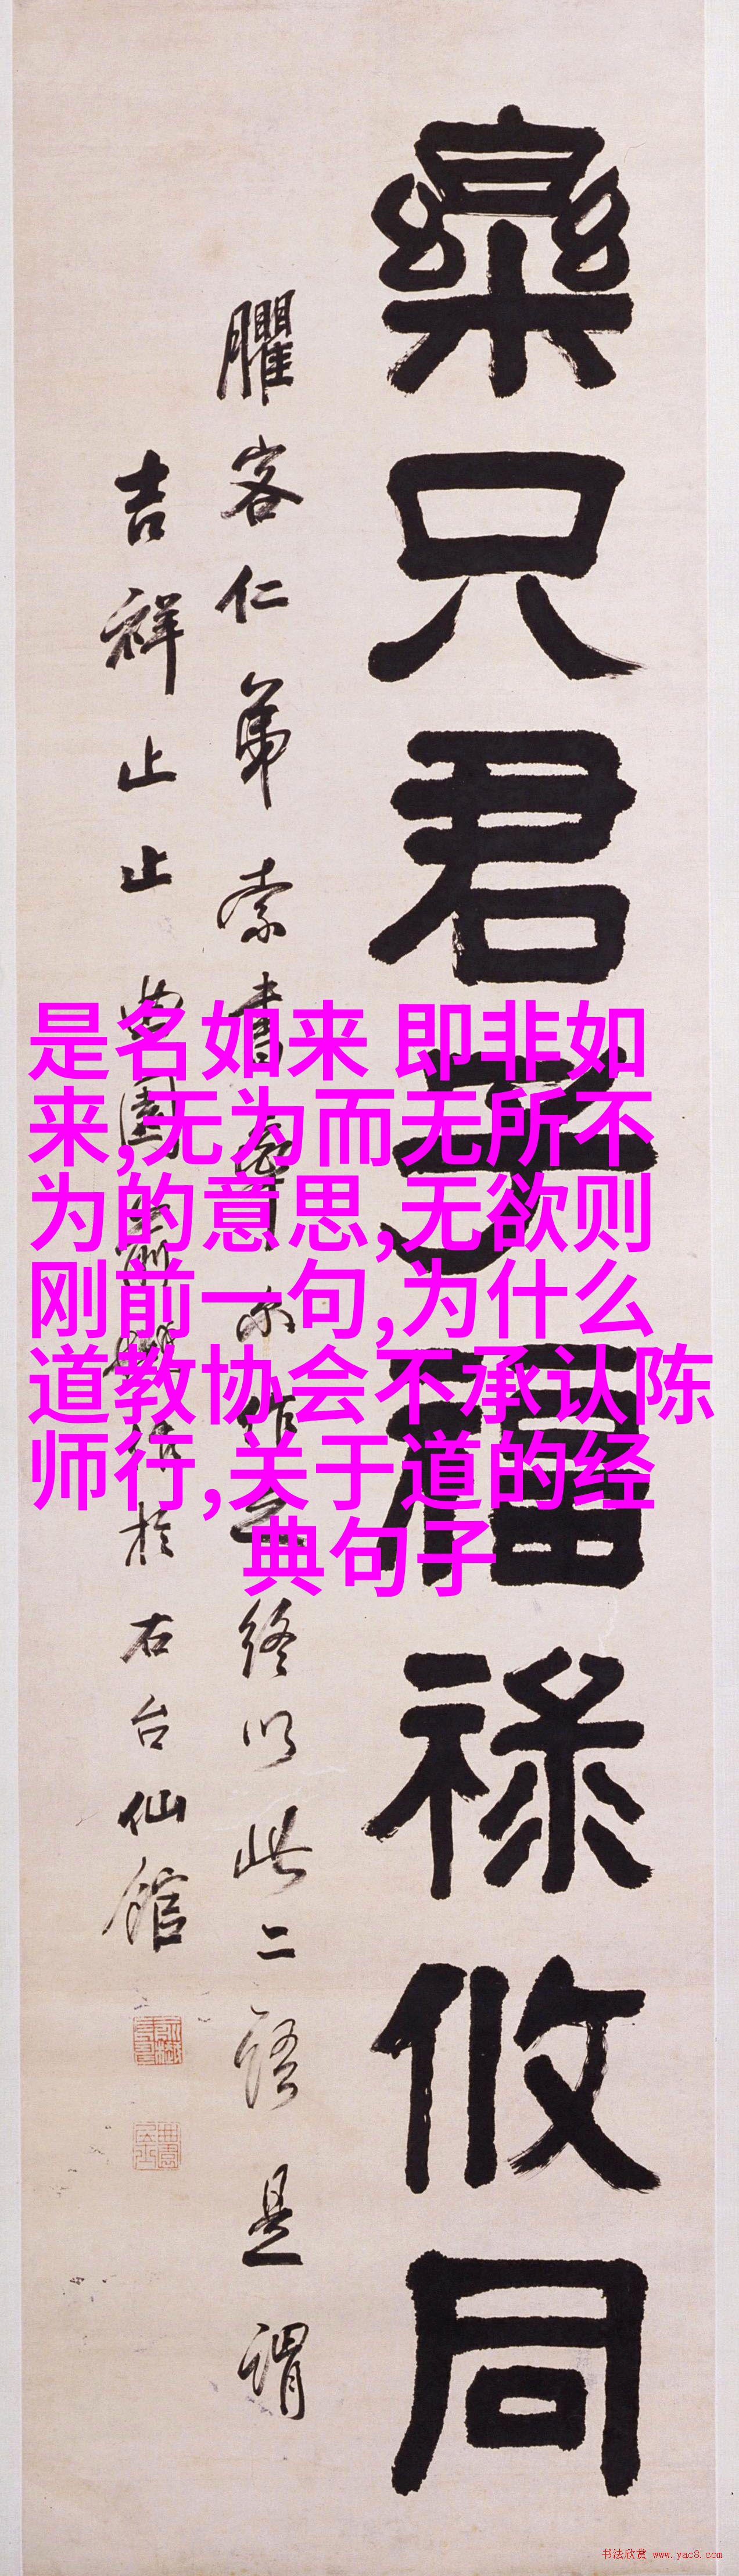 樂只君子福祿攸同
臞客仁弟索書
終以此二語是謂
吉祥止止曲園
於右台仙館
是名如来,即非如
来,无为而无所不
为的意思,无欲则
刚前一句,为什么
道教协会不承认陈
师行,关于道的经
典句子
书法欣赏 www.yac8.com